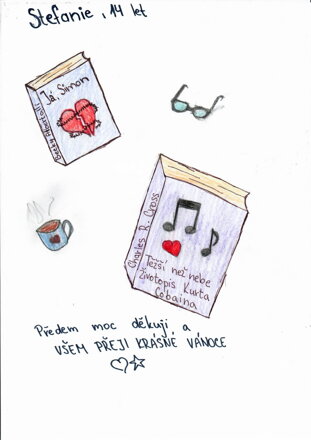 Stefanie, 14 let
Já, Simon
Becky Albertalli
Charles R. Cross
Těžší než nebe
životopis Kurta
Cobaina
Předem moc děkuji a
VŠEM PŘEJI KRÁSNÉ VÁNOCE